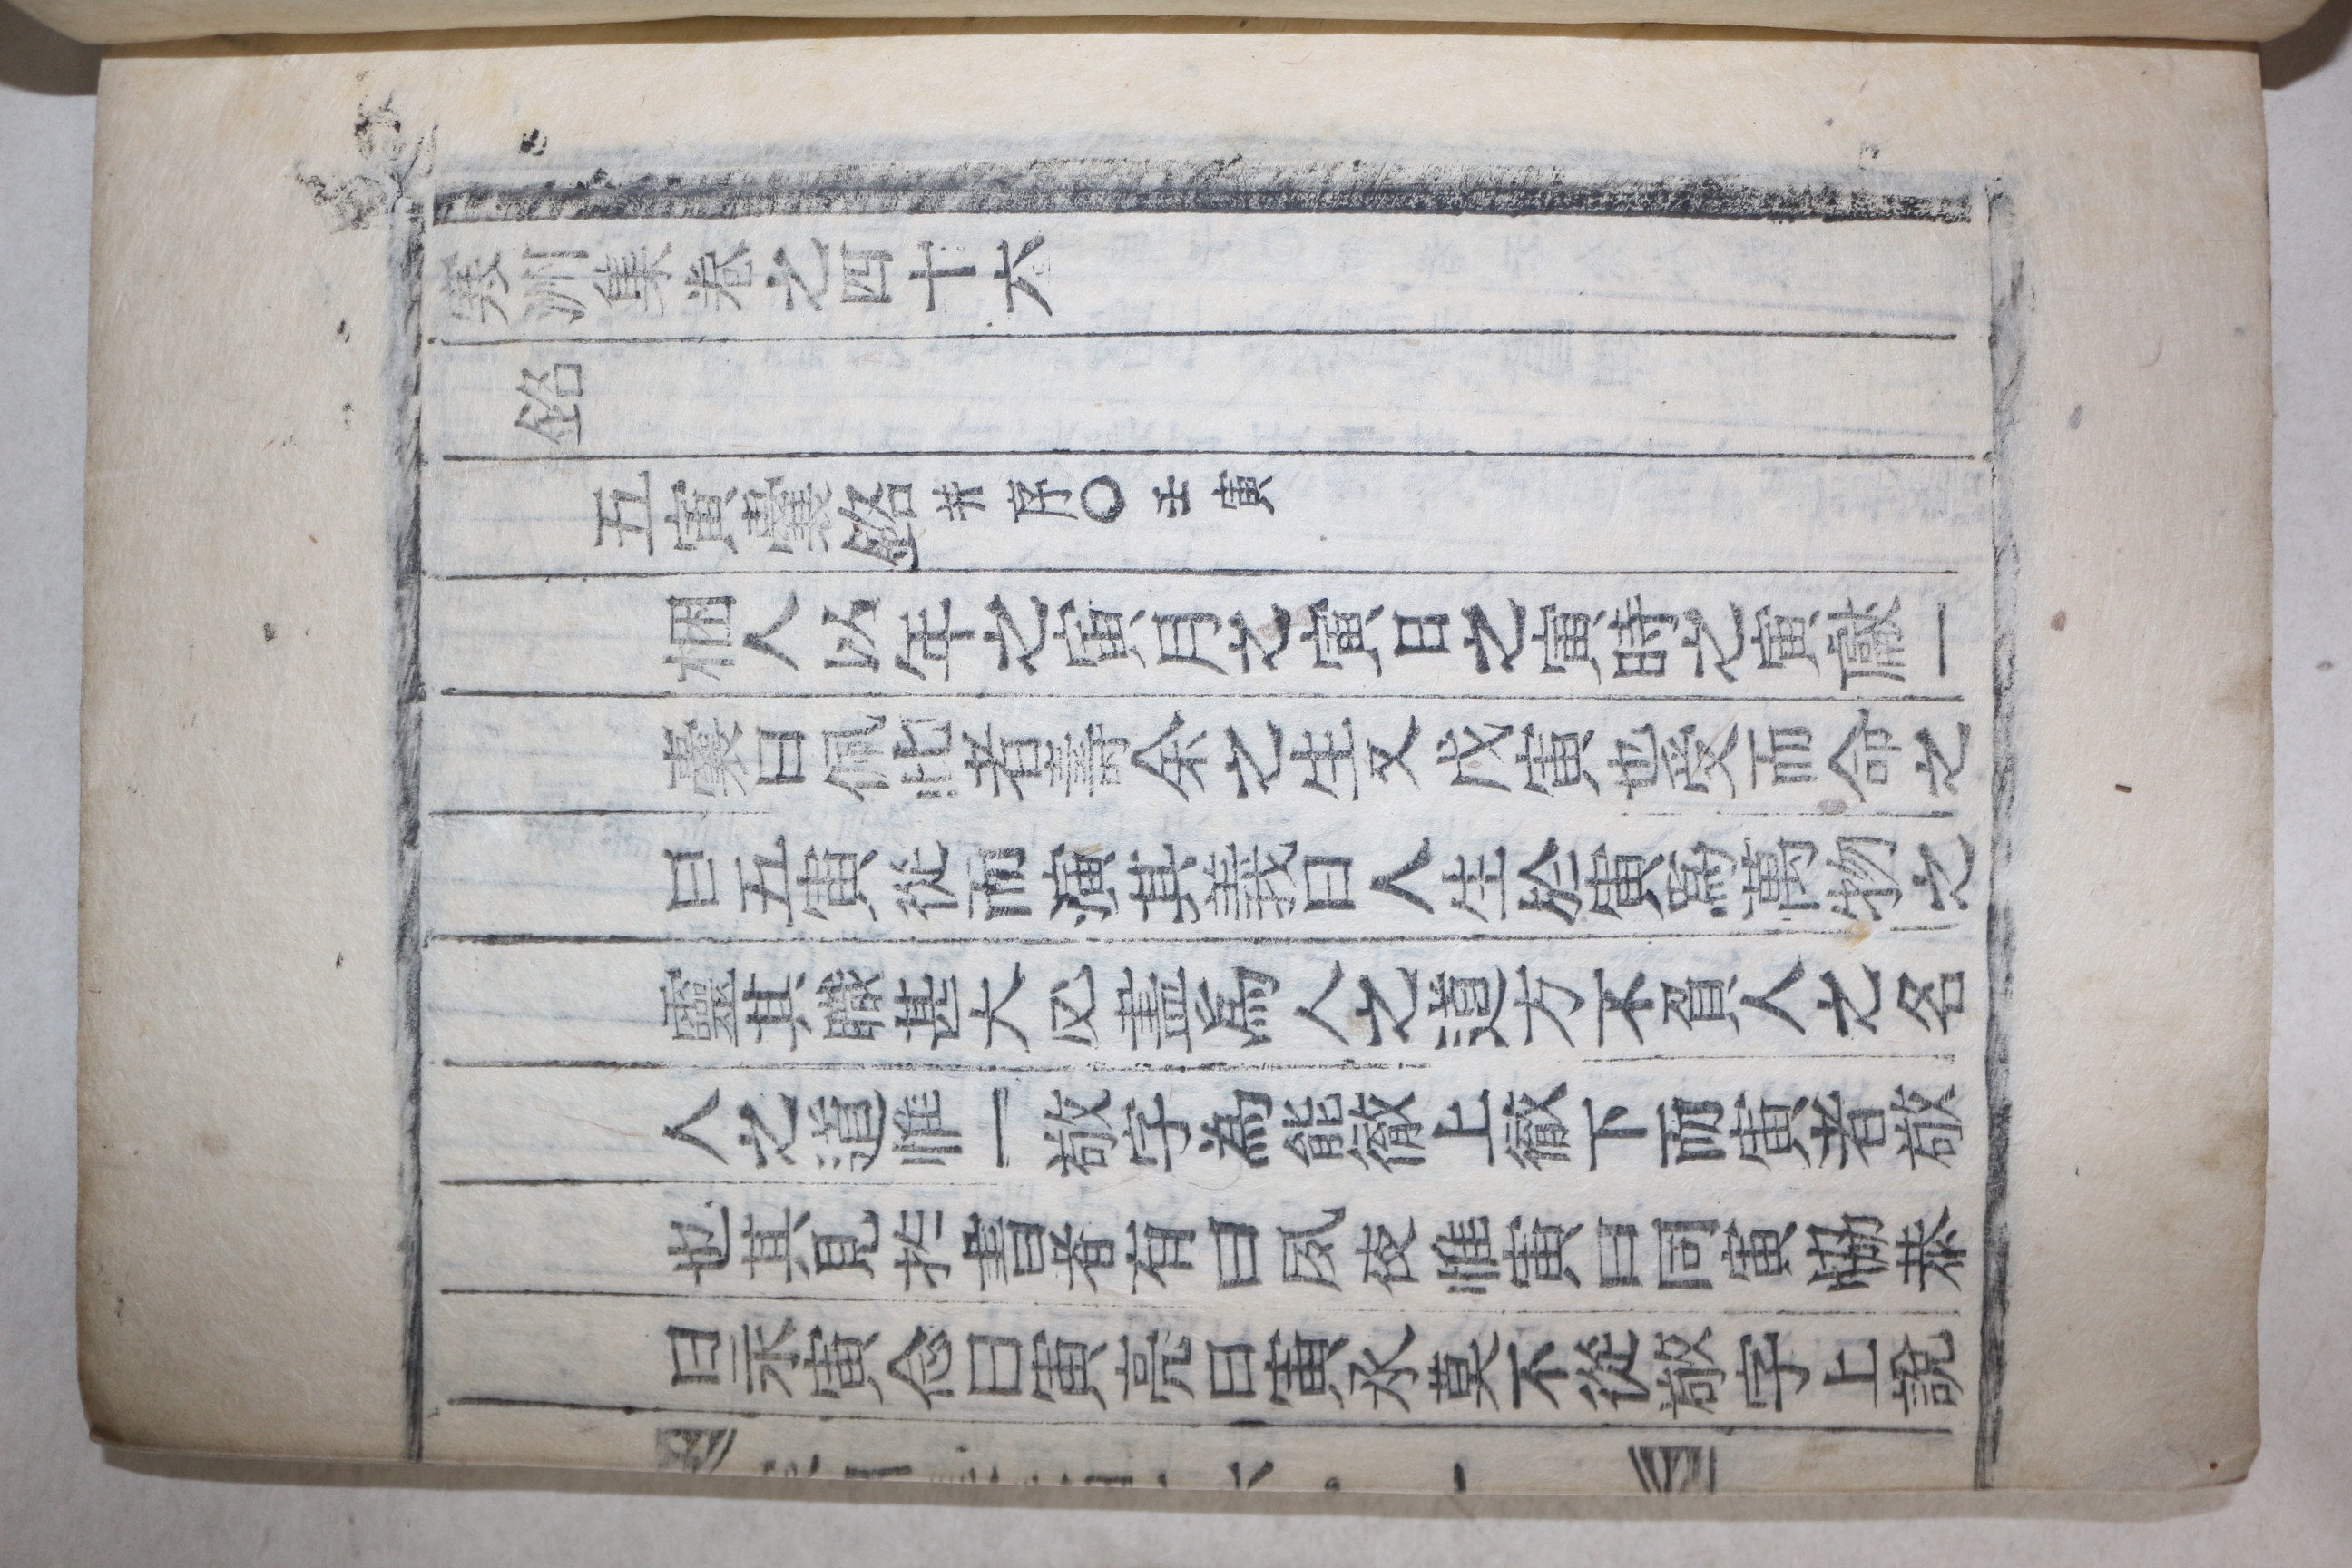 寒洲集卷之四十六
銘
五寅囊銘 幷序○壬寅
人以年之寅月之寅日之寅時之寅一
囊曰佩此者壽余之生又戊寅也受而命之
曰五寅從而演其義曰人生於寅爲萬物之
靈其職甚大必盡為人之道方不負人之名
人之道惟一敬字為能徹上徹下而寅者敬
也其見於書者有曰夙夜惟寅曰同寅協恭
曰永寅念曰寅亮曰寅莫不從敬字上說